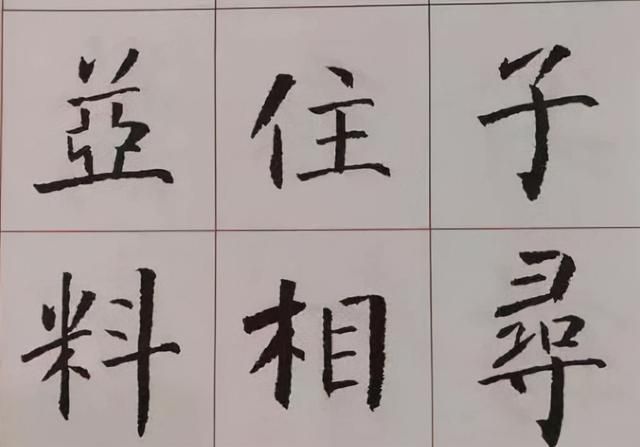 並住子
料相尋